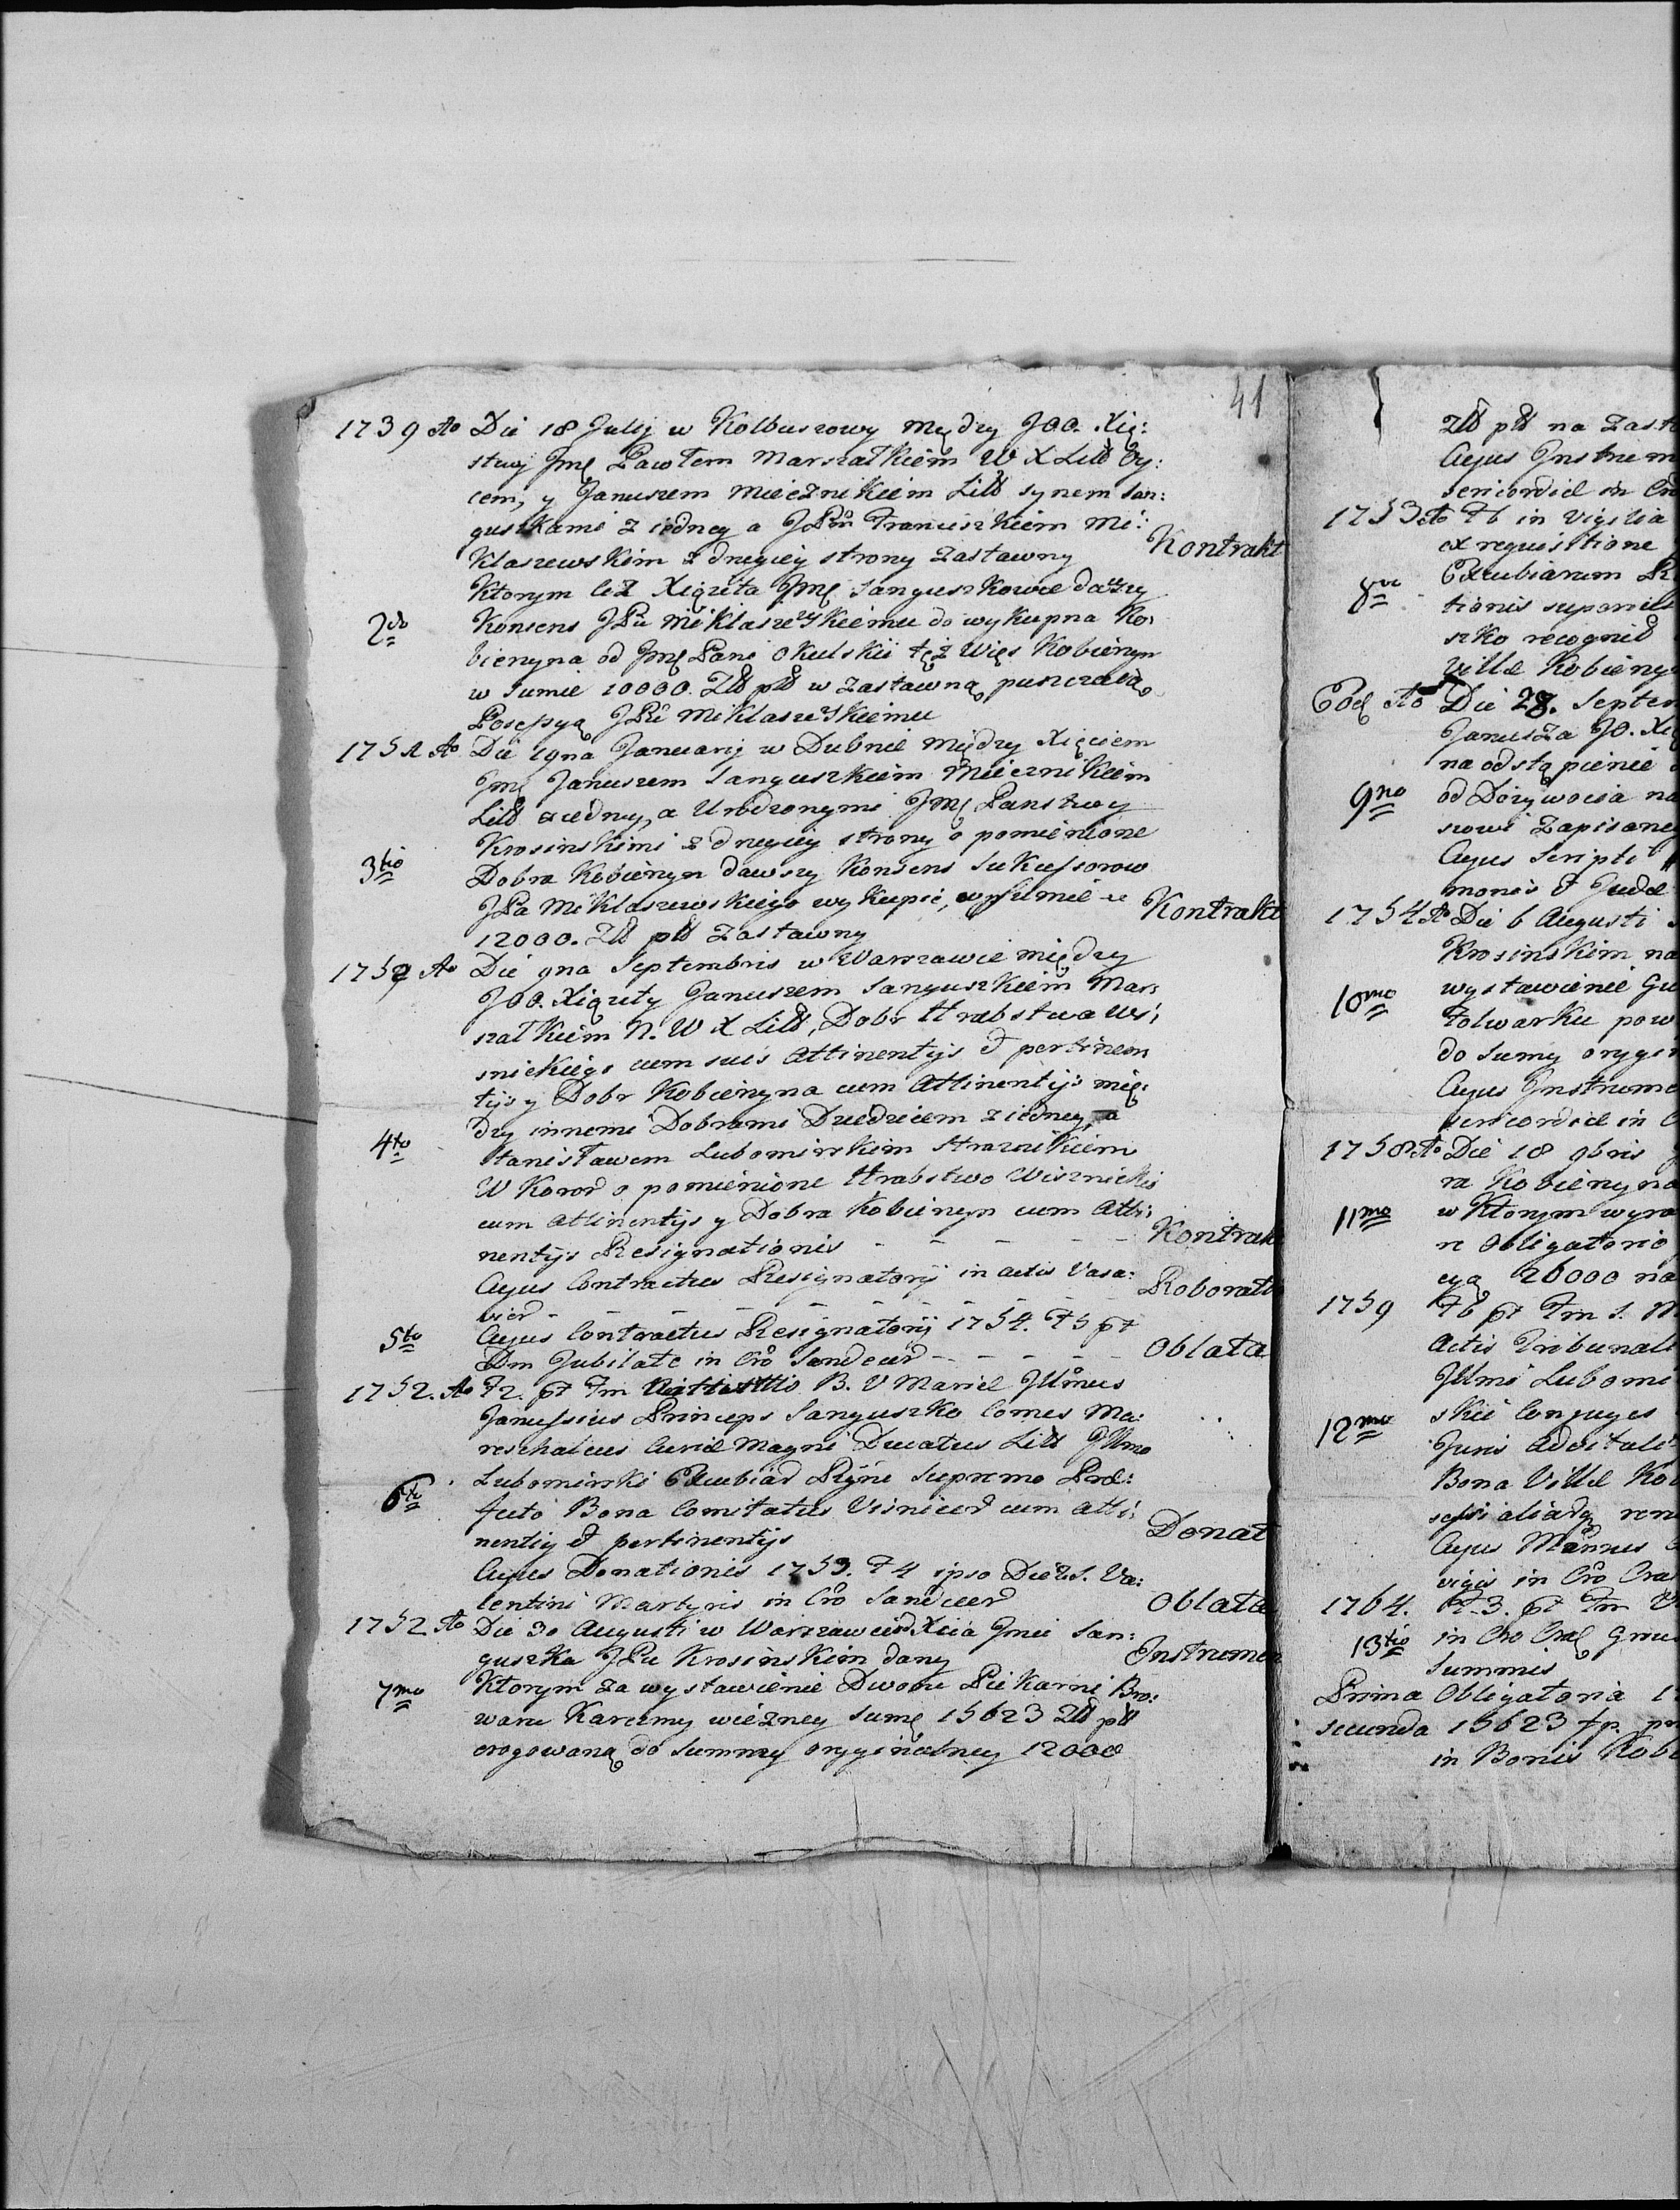 41
1739 Ao Die 18 Julij w Kolbuszowy między JOO. Xię:
stwy Jmę Pawłem Marszałkiem W X Litt Oy:
cem, y Januszem Miecznikiem Litt synem San:
guszkami z iedney a JPm Franciszkiem Mi:
klaszewskim z drugiey strony Zastawny Kontrakt
Ktorym też Xiążęta Jmę Sanguszkowie dawszy
2do Konsens JPu Miklaszewskiemu do wykupna Ko:
bienyna od Jmę Pani Okulskii tęż Wieś Kobienyn
w Sumie 10000. Złł płł w Zastawną puszczaią
Possessyą JPu Miklaszewskiemu
Ao Die 19na Januarij w Dubnie między Xięciem
Jmę Januszem Sanguszkiem Miecznikiem
Litt z iedney, a Urodzonymi Jmę Panstwy
Krosinskimi z drugiey strony o pomienione
3tio Dobra Kobienyn dawszy Konsens Sukcessorow
JPa Miklaszewskiego wykupić, w Sumie
12000. Złł płł Zastawny Kontrakt
1752 Ao Die 9na Septembris w Warszawie między
JOO. Xiążęty Januszem Sanguszkiem Mar:
szałkiem N. W X Litt, Dobr Hrabstwa Wi:
snickiego cum suis Attinentijs et pertinen
tijs y Dobr Kobienyna cum Attinentijs mię:
dzy innemi Dobrami Dziedzicem z iedney, a
4to Stanisławem Lubomirskim Strażnikiem
W Koron o pomienione Hrabstwo Wisznickie
cum Attinentijs y Dobra Kobienyn cum Atti:
nentijs Resignationis - - - - - Kontrak
Cujus Contractus Resignatorij in actis Varsa:
vien - - - - - - - - Roborati
5to Cujus Contractus Resignatorij 1754. F5 pt
Dm Jubilate in Cro Sandecen - - - - - Oblata
1752. Ao F2. pt Fm B. V Mariæ Jllmus
Janussius Princeps Sanguszko Comes Ma:
reschalcus Curiæ Magni Ducatus Litt Jllmo
Lubomirski Excubiar Regni Supremo Præ:
6to fecto Bona Comitatus Visnicen cum atti:
nentijs et pertinentijs Donat
Cujus Donationis 1753. F4 ipso Die S. Va:
lentini Martyris in Cro Sandecen Oblata
1752 Ao Die 30 Augusti w Warszawie Xcia Jmci San:
guszka JPu Krosinskim dany Instrumen
7mo Ktorym za wystawienie Dworu Piekarni Bro:
waru Karczmy wieżney Sumę 15623 Złł płł
erogowaną do Summy oryginalney 12000
Złł płł na Zast
Cujus Instrum
sericordiæ in Cr
1753 Ao F6 in Vigilia
ex requisitione
Excubiarum
8vo tionis
szko recognit
Villæ Kobieny
Eod Ao Die 28. Septem
Janusza JO. Xi
na odstąpienie
9no od Dożywocia na
rowi Zapisane
Cujus Scripti
monis et Judæ
1754 Ao Die 6 Augusti
Krosinskim na
10mo wystawienie Gu
Folwarku pow
do Sumy orygi
Cujus Instrume
sericordiæ in C
1758 Ao Die 18 9bris
ra Kobienyna
11mo w Ktorym wyra
re Obligatorio
cyą 26000 na
1759 F6 pt Fm S.
Actis Tribunal
Jllmi Lubomi
12mo skii Conjuges
Juris Advitali
Bona Villæ Ko

Cujus
in Cro Cra
1764. F. 3. pt Fm
13tio in Cro Crac
Summis
Prima Obligatoria 1
secunda 15623 fp.
in Bonis Kobi